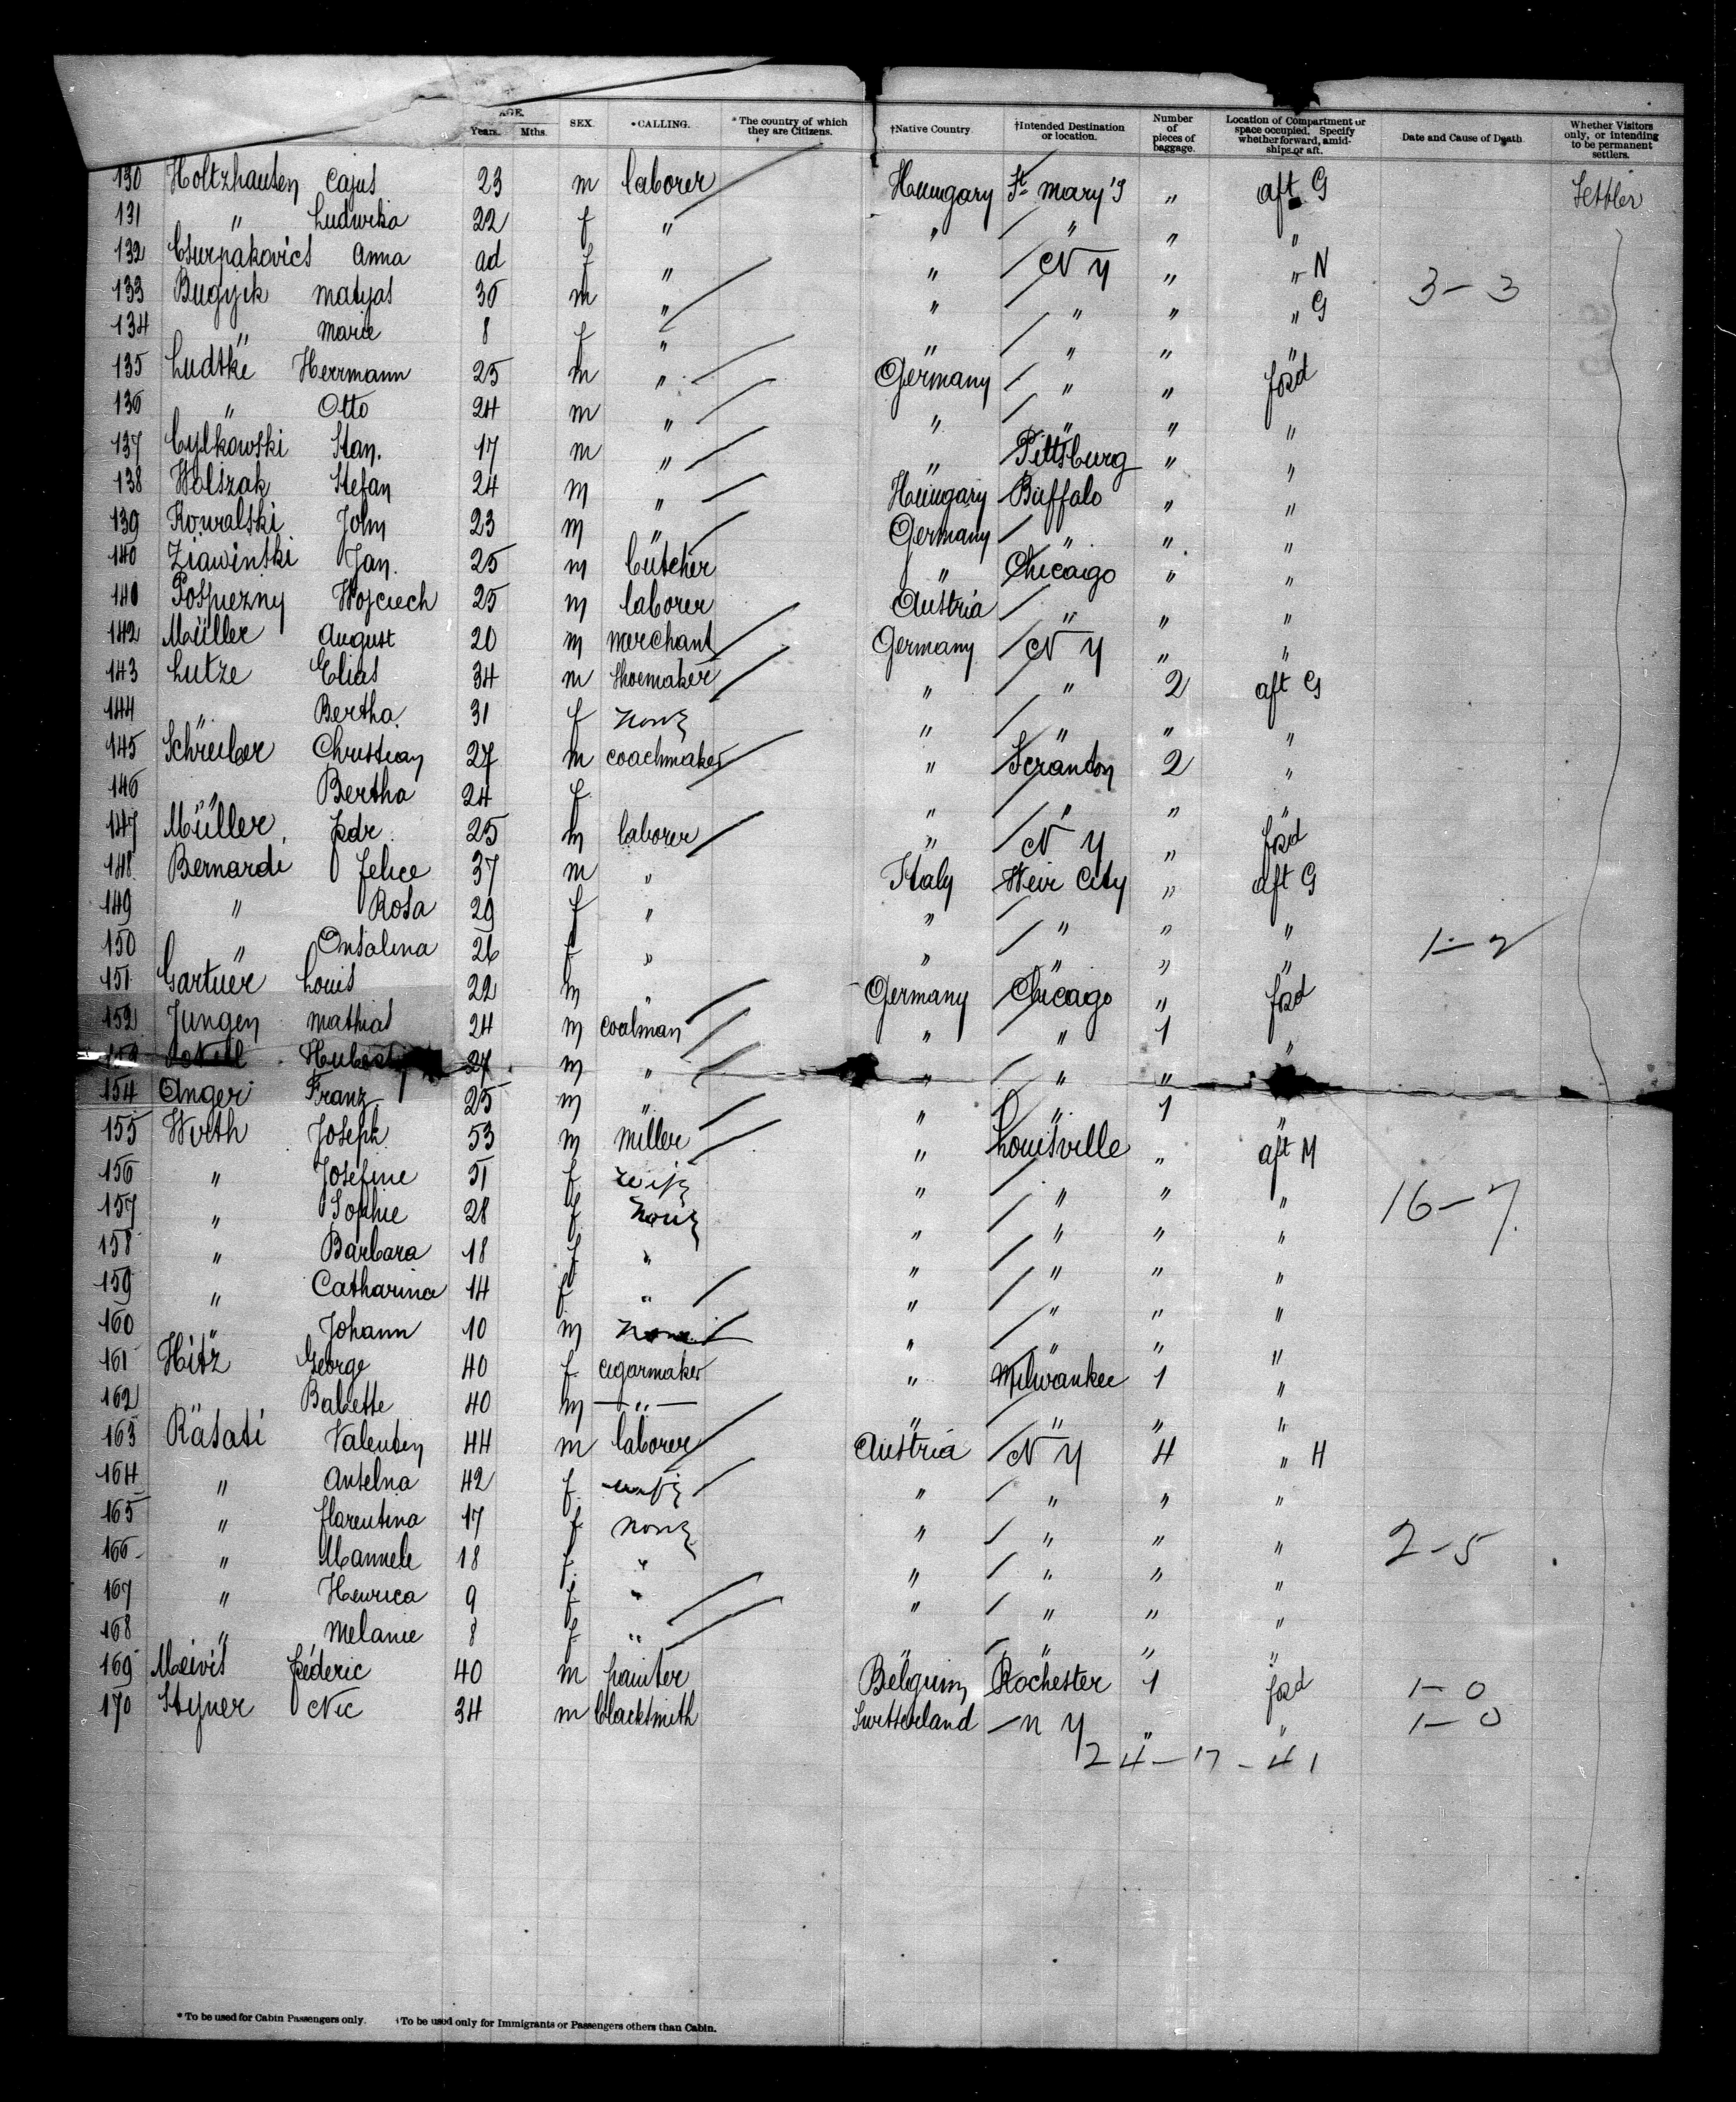 AGE.
Years. Mths. SEX. *CALLING. *The country of which they are Citizens. †Native Country. †Intended Destination or location. Number of pieces of baggage. Location of Compartment or space occupied. Specify whether forward, amidships or aft. Date and Cause of Death. Whether Visitors only, or intending to be permanent settlers.
130 Holtzhausen Cajus 23 m laborer Hungary St. Mary's " aft G Settler
131 " Ludwika 22 f " " " " "
132 Csurpakovics Anna ad f " " N Y " " N
133 Bugyik Matyas 36 m " " " " " G 3-3
134 " Marie 8 f " " " " "
135 Ludtke Herrmann 25 m " Germany " " fwd
136 " Otto 24 m " " " " "
137 Cylkowski Stan. 17 m " " Pittsburg " "
138 Wolszak Stefan 24 m " Hungary Buffalo " "
139 Kowalski John 23 m " Germany " " "
140 Ziawinski Jan. 25 m butcher " Chicago " "
141 Pospiezny Wojciech 25 m laborer Austria " " "
142 Müller August 20 m merchant Germany N Y " "
143 Lutze Elias 34 m shoemaker " " 2 aft G
144 " Bertha 31 f none " " " "
145 Schreiber Christian 27 m coachmaker " Scranton 2 "
146 " Bertha 24 f " " " "
147 Müller, Fedr. 25 m laborer " N Y " fwd
148 Bernardi Felice 37 m " Italy Weir City " aft G
149 " Rosa 29 f " " " " "
150 " Onsalina 26 f " " " " " 1-2
151 Gartner Louis 22 m " Germany Chicago " fwd
152 Jungen Mathias 24 m coalman " " 1 "
153 Hubert 27 m " " " "
154 Anger Franz 25 m " " " 1 "
155 Wirth Joseph 53 m miller " Louisville " aft M
156 " Josefine 51 f wife " " " "
157 " Sophie 28 f none " " " " 16-7
158 " Barbara 18 f " " " " "
159 " Catharina 14 f " " " " "
160 " Johann 10 m none " " " "
161 Hitz George 40 f cigarmaker " Milwaukee 1 "
162 " Babette 40 m -"- " " " "
163 Räsati Valentin 44 m laborer Austria N Y 4 " H
164 " Anselna 42 f wife " " " "
165 " Florentina 17 f none " " " "
166 " Mannele 18 f " " " " " 2-5
167 " Henrica 9 f " " " " "
168 " Melanie 8 f " " " " "
169 Meivis Federic 40 m painter Belgium Rochester 1 fwd 1-0
170 Styner Nic 34 m blacksmith Switserland N Y " " 1-0
24-17-41
*To be used for Cabin Passengers only. †To be used only for Immigrants or Passengers others than Cabin.